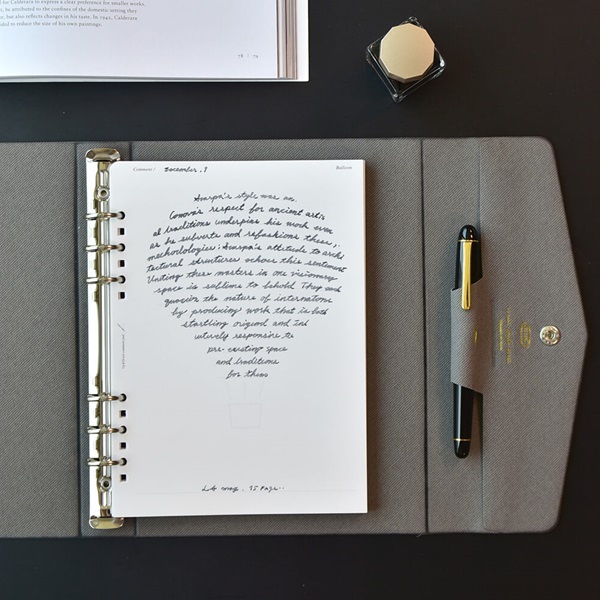 for Calderara to express a clear preference for smaller works.
be attributed to the confines of the domestic setting they
but also reflects changes in his taste. In 1942, Calderara
to reduce the size of his own paintings.
78 | 79
Comment / December, 7
Balloon
Scarpa's style was an.
Canova's respect for ancient artis
al traditions underpins his work even
as he subverts and refashions these,
methodologies; Scarpa's attitude to archi
tectural structures echoes this sentiment
Uniting these masters in one visionary
space is sublime to behold. They each
question the nature of
by producing work that is both
startling original and
responsive to
pre-existing space
and traditions
for them
35 Page..